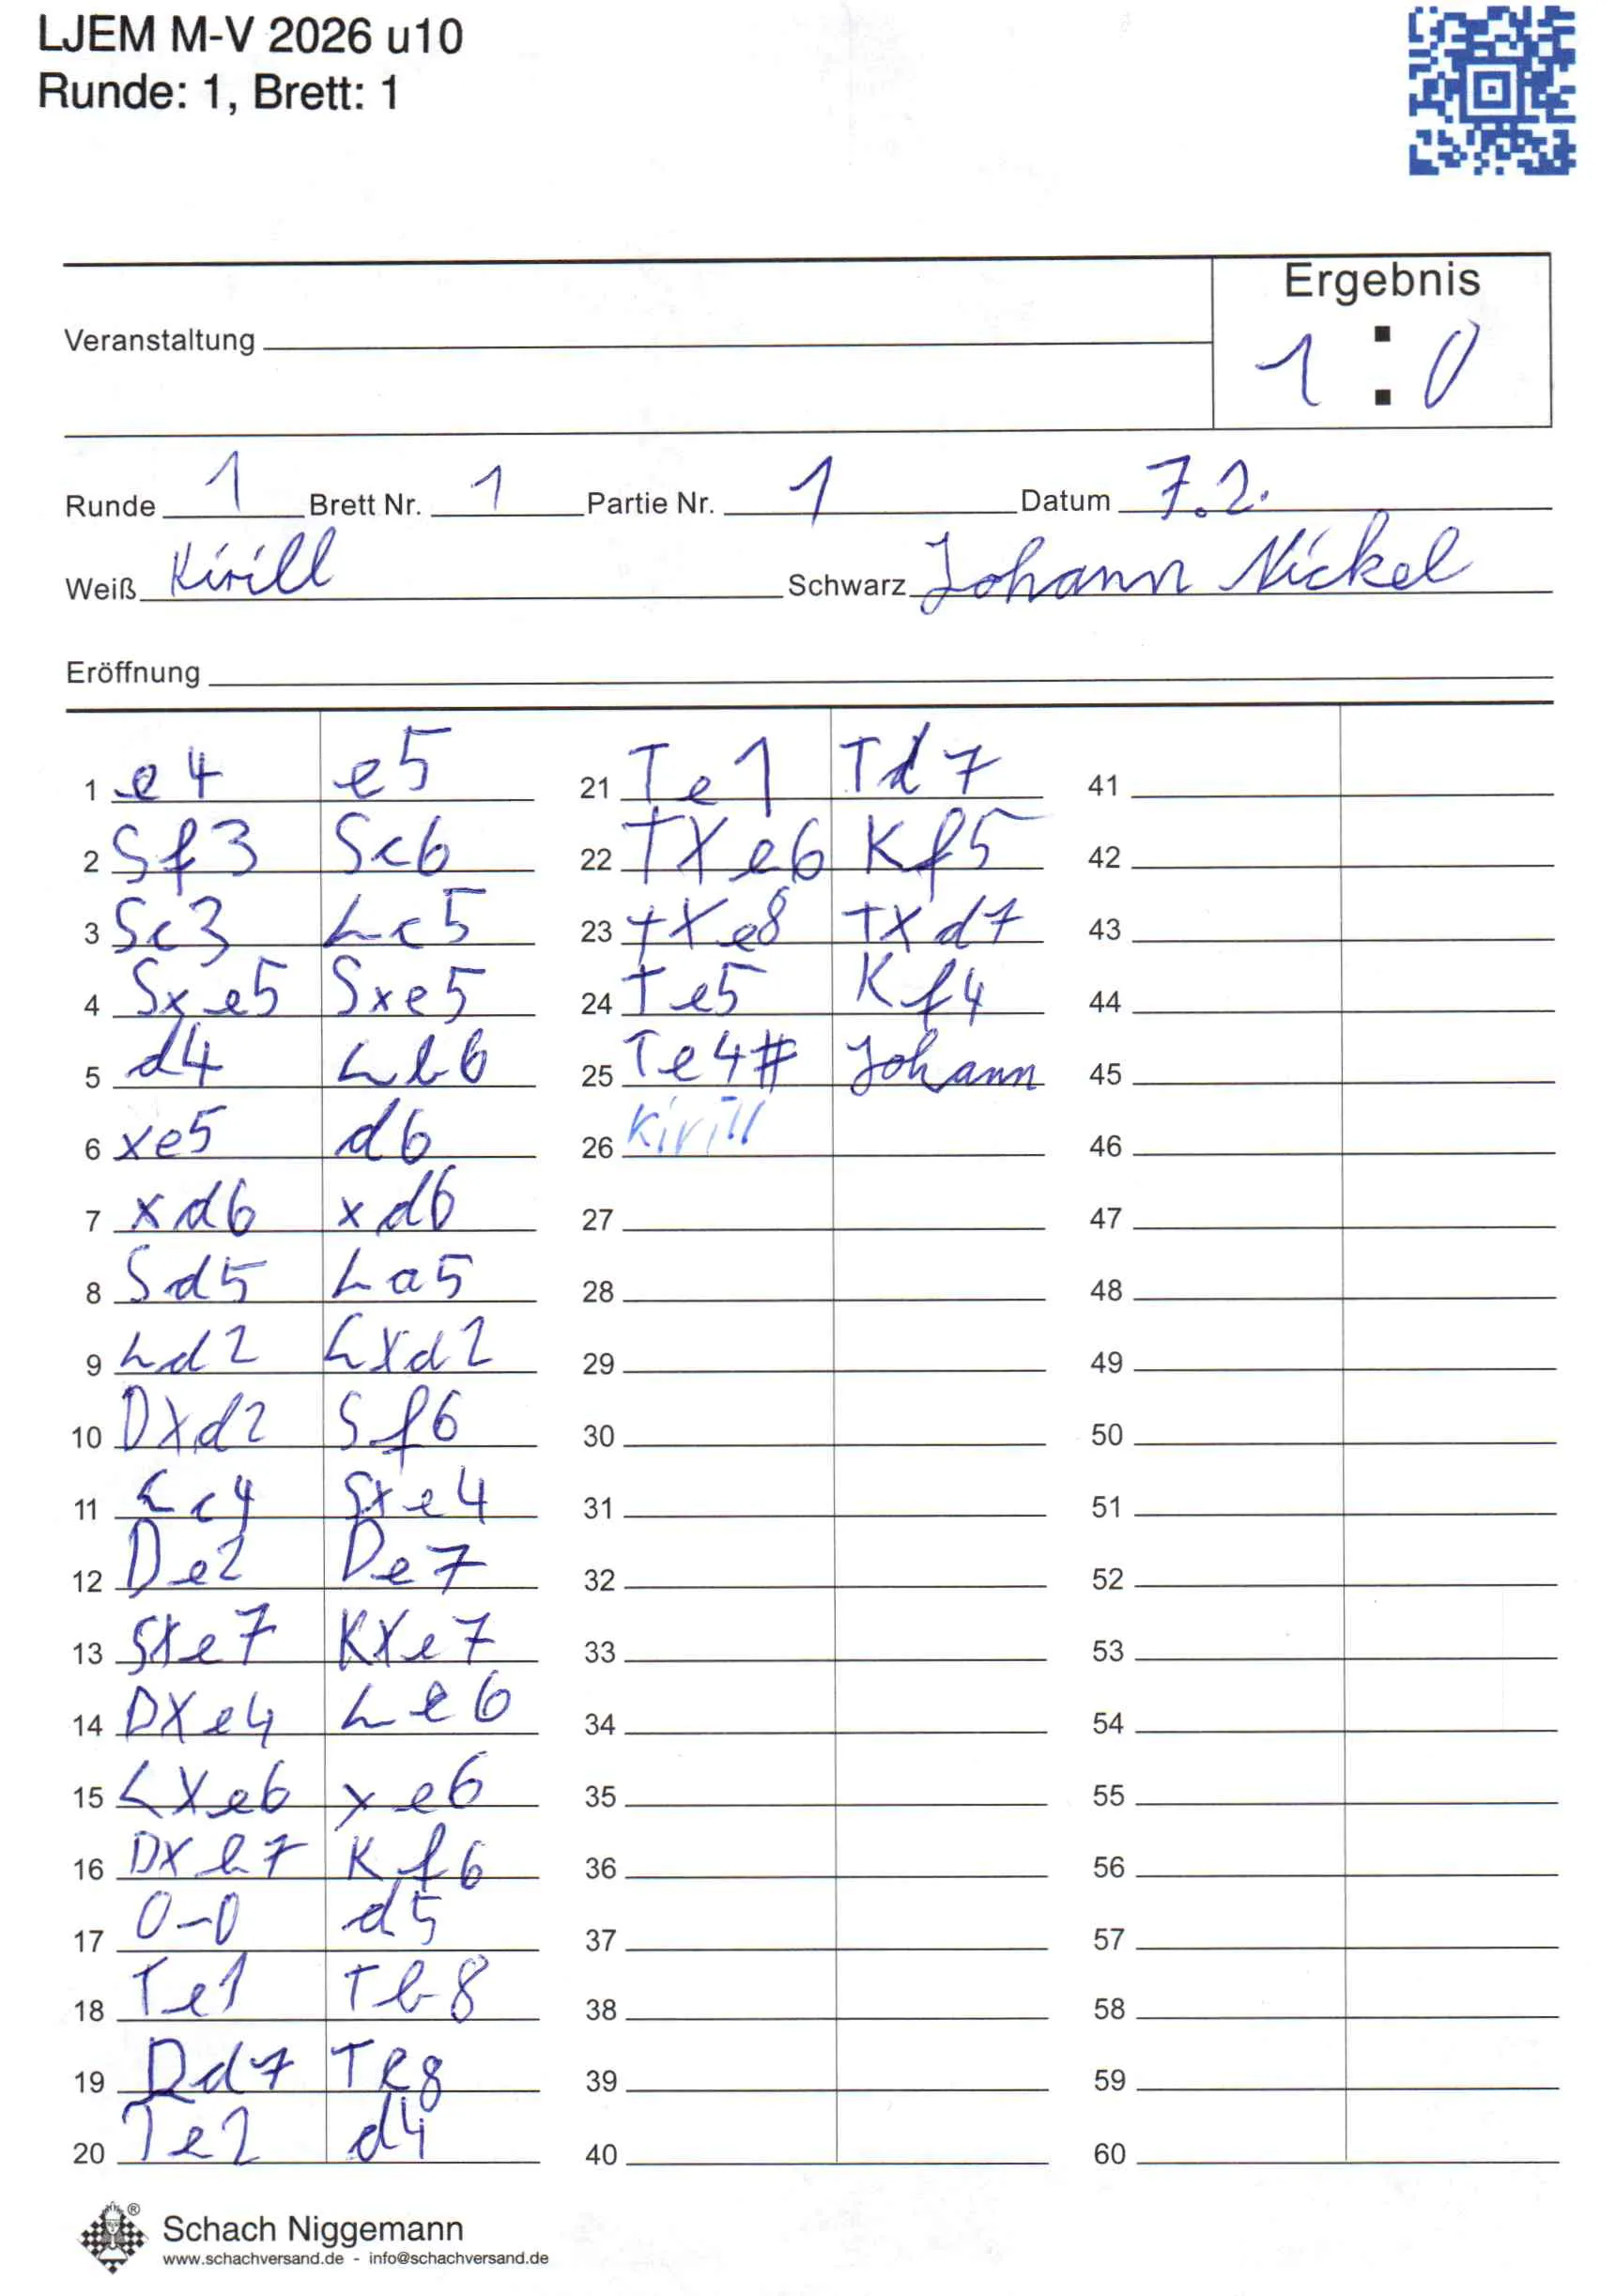 LJEM M-V 2026 u10
Runde: 1, Brett: 1
Ergebnis
Veranstaltung
1 : 0
Runde 1 Brett Nr. 1 Partie Nr. 1 Datum 7.2.
Weiß Kirill Schwarz Johann Nickel
Eröffnung
1 e4 e5
2 Sf3 Sc6
3 Sc3 Lc5
4 Sxe5 Sxe5
5 d4 Lb6
6 xe5 d6
7 xd6 xd6
8 Sd5 La5
9 Ld2 LXd2
10 DXd2 Sf6
11 Lc4 Sxe4
12 De2 De7
13 SXe7 KXe7
14 DXe4 Le6
15 LXe6 xe6
16 DXb7 Kf6
17 0-0 d5
18 Te1 Tb8
19 Dd7 Te8
20 Te2 d4
21 Te1 Td7
22 TXe6 Kf5
23 TXe8 TXd7
24 Te5 Kf4
25 Te4# Johann
26 Kirill
27
28
29
30
31
32
33
34
35
36
37
38
39
40
41
42
43
44
45
46
47
48
49
50
51
52
53
54
55
56
57
58
59
60
®
Schach Niggemann
www.schachversand.de - info@schachversand.de